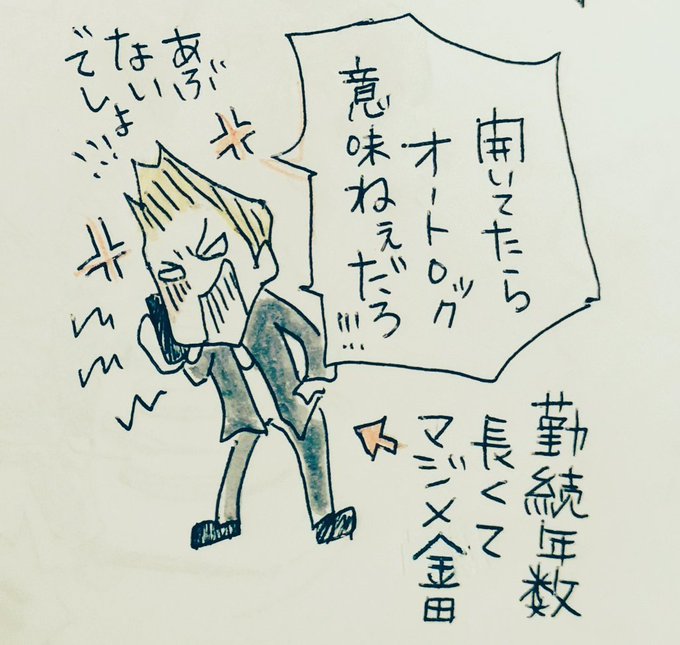 開いてたら
オートロック
意味ねぇだろ!!!
あぶ
ない
でしょ
!!!
勤続年数
長くて
マジメ金田